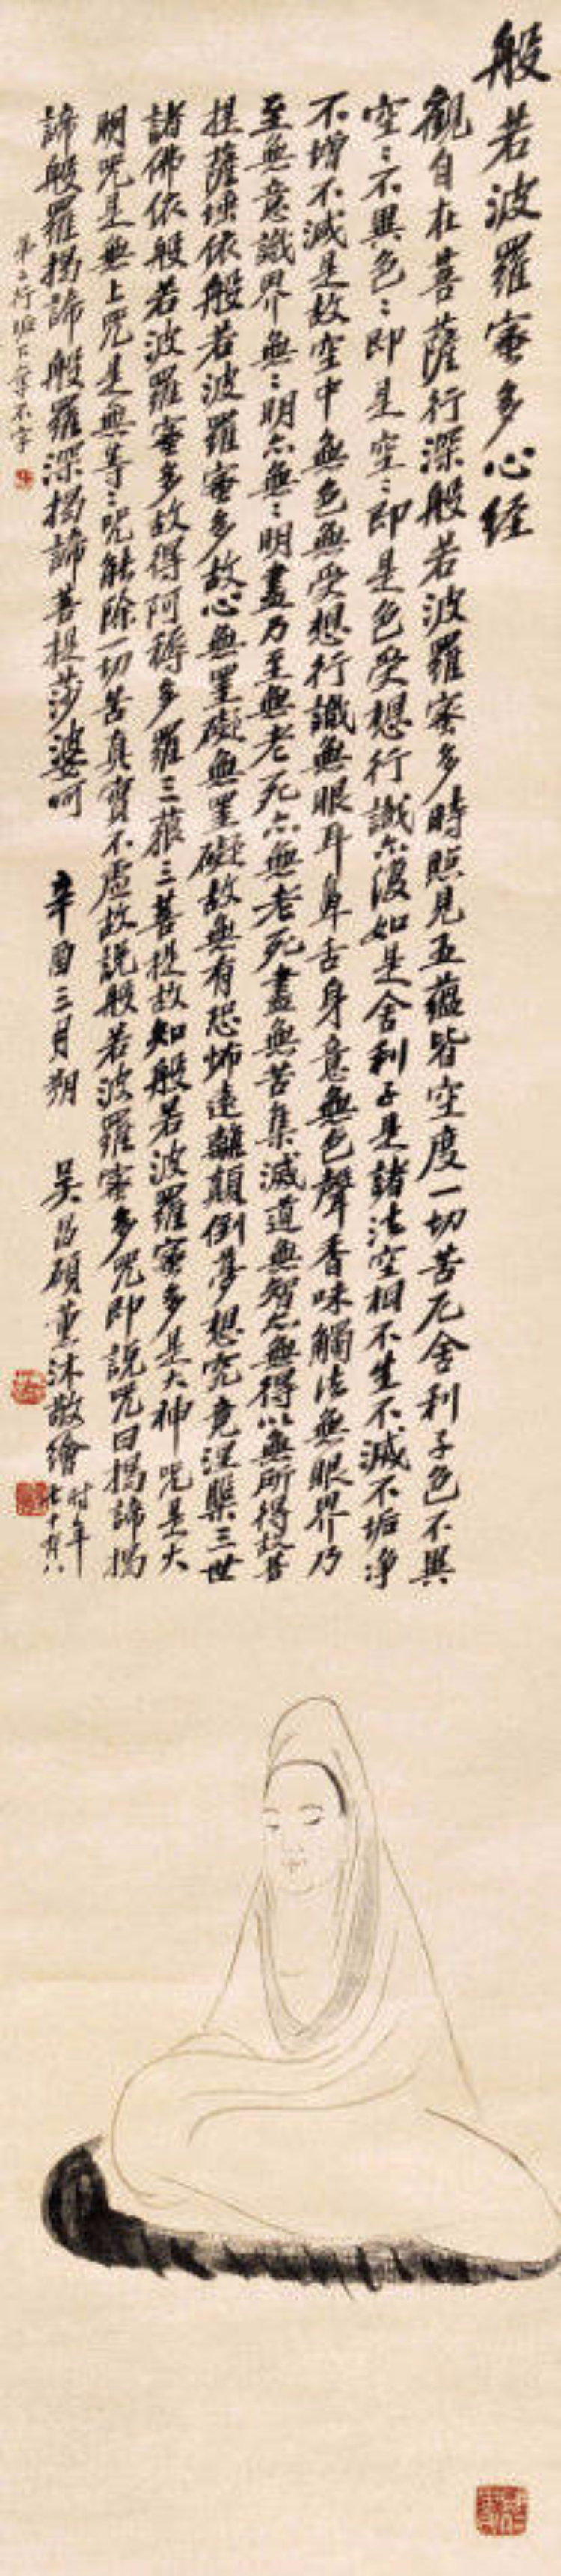 般若波羅蜜多心經
觀自在菩薩行深般若波羅蜜多時照見五蘊皆空度一切苦厄舍利子色不異
空〻不異色〻即是空〻即是色受想行識亦復如是舍利子是諸法空相不生不滅不垢淨
不增不減是故空中無色無受想行識無眼耳鼻舌身意無色聲香味觸法無眼界乃
至無意識界無〻明亦無〻明盡乃至無老死亦無老死盡無苦集滅道無智亦無得以無所得故菩
提薩埵依般若波羅蜜多故心無罣礙無罣礙故無有恐怖遠離顛倒夢想究竟涅槃三世
諸佛依般若波羅蜜多故得阿耨多羅三藐三菩提故知般若波羅蜜多是大神咒是大
明咒是無上咒是無等〻咒能除一切苦真實不虛故說般若波羅蜜多咒即說咒曰揭諦揭
諦般羅揭諦般羅深揭諦菩提莎婆呵 辛酉三月朔 吳昌碩薰沐敬繪 時年七十有八
第二行垢下奪不字